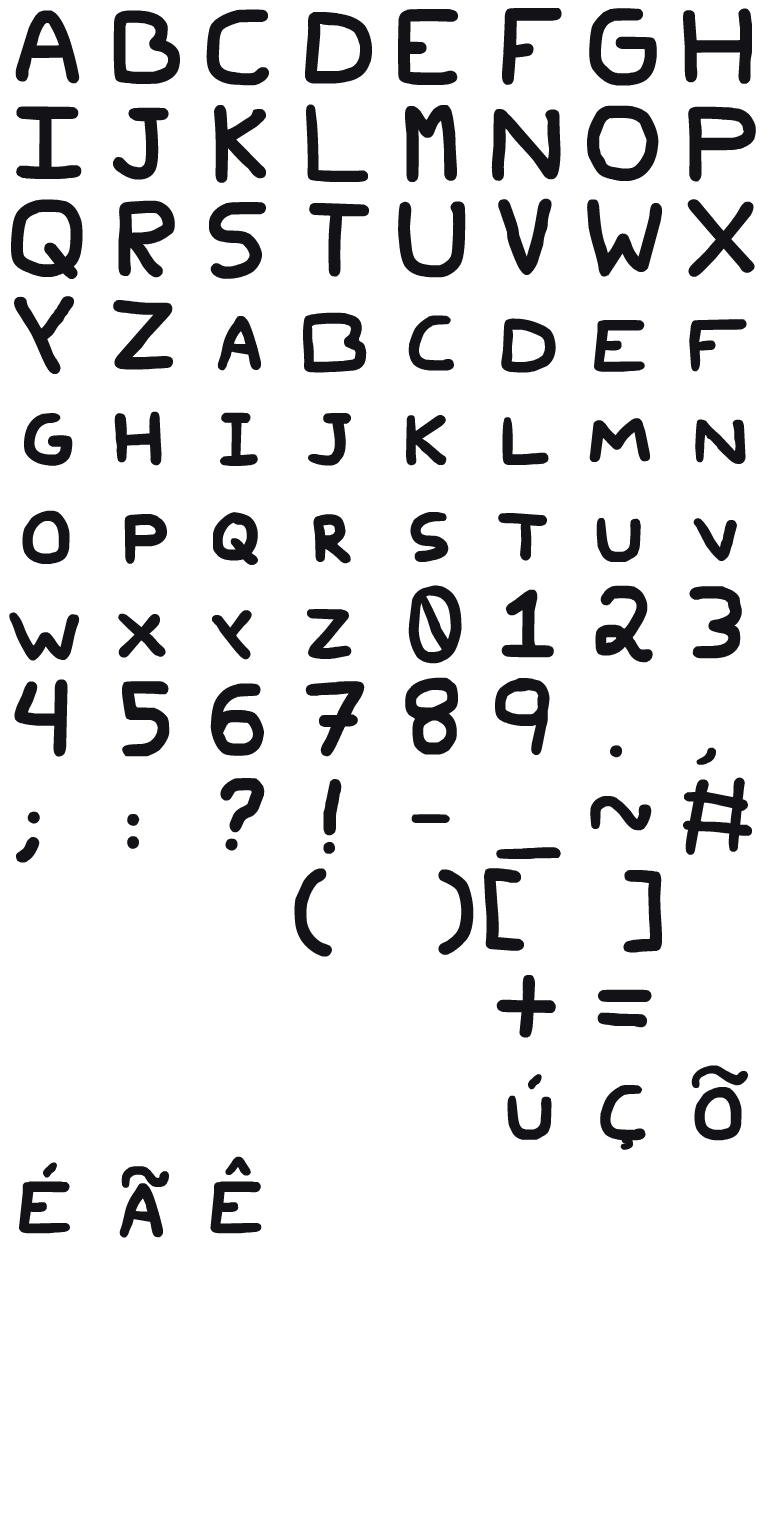 A B C D E F G H
I J K L M N O P
Q R S T U V W X
Y Z A B C D E F
G H I J K L M N
O P Q R S T U V
W X Y Z 0 1 2 3
4 5 6 7 8 9 . ,
; : ? ! - _ ~ #
( ) [ ]
+ =
Ú Ç Õ
É Ã Ê